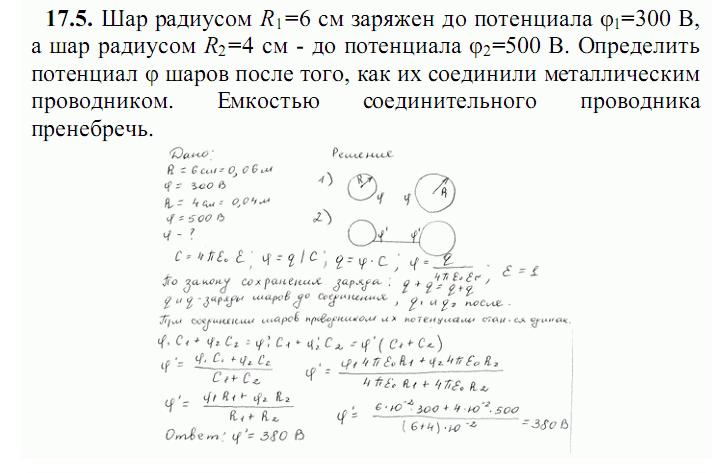 17.5. Шар радиусом R₁=6 см заряжен до потенциала φ₁=300 В,
а шар радиусом R₂=4 см - до потенциала φ₂=500 В. Определить
потенциал φ шаров после того, как их соединили металлическим
проводником. Емкостью соединительного проводника
пренебречь.
Дано:
R = 6 см = 0,06 м
φ = 300 В
R = 4 см = 0,04 м
φ = 500 В
φ - ?
Решение
1) R φ φ R
2) φ' φ'
C = 4πε₀ ε; φ = q/C; q = φ·C; φ = q / 4πε₀εr; ε = 1
По закону сохранения заряда: q + q = q + q
q и q - заряды шаров до соединения, q₁ и q₂ после.
При соединении шаров проводником их потенциалы стан-ся одинак.
φ₁C₁ + φ₂C₂ = φ'₁C₁ + φ'₂C₂ = φ'(C₁ + C₂)
φ' = φ₁C₁ + φ₂C₂ / C₁ + C₂ φ' = φ₁4πε₀R₁ + φ₂4πε₀R₂ / 4πε₀R₁ + 4πε₀R₂
φ' = φ₁R₁ + φ₂R₂ / R₁ + R₂ φ' = 6·10⁻²·300 + 4·10⁻²·500 / (6+4)·10⁻² = 380 В
Ответ: φ' = 380 В